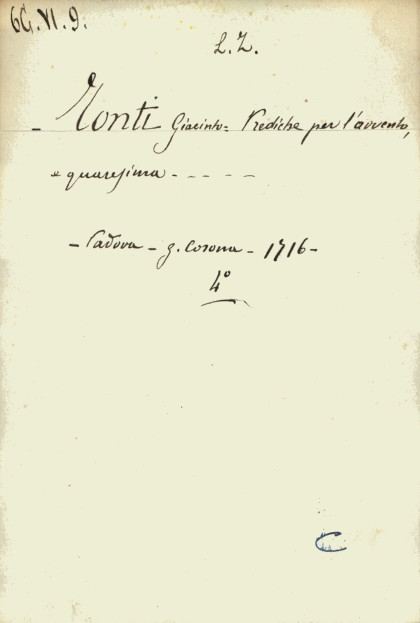 6G.VI.9.
L.Z.
- Tonti Giacinto= Prediche per l'avvento,
e quaresima - - - - -
- Padova - g. Corona - 1716 -
4°
C